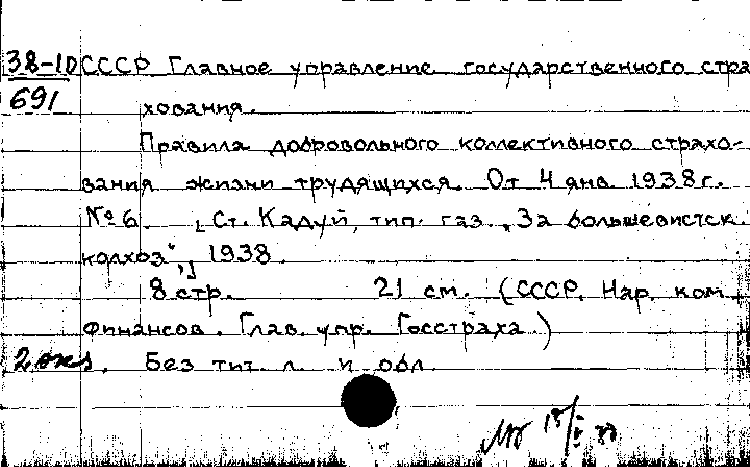 38-10 СССР Главное управление государственного стра
691 хования.
Правила добровольного коллективного страхо-
вания жизни трудящихся. От 4 янв. 1938 г.
№ 6. [Ст. Кадуй, тип. газ. „За большевистск.
колхоз“,] 1938.
8 стр. 21 см. (СССР. Нар. ком.
финансов. Глав. упр. Госстраха.)
2 экз. Без тит. л. и обл.